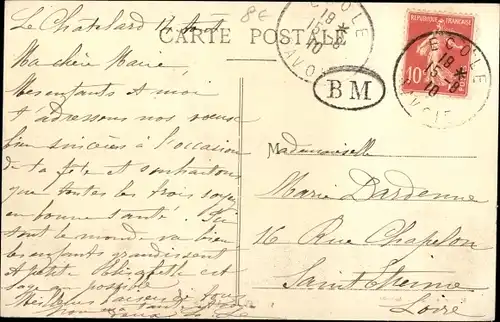 Le Châtelard 12 Août
8€
CARTE POSTALE
ECOLE
18 *
15-8
10
SAVOIE
REPUBLIQUE FRANÇAISE
10
ECOLE
18 *
15-8
10
BM
Ma chère Marie,
Mes enfants & moi
t'adressons nos vœux
bien sincères à l'occasion
de ta fête et souhaitons
que toutes les trois soyez
en bonne santé.
tout le monde va bien
les enfants grandissent
& petite est
sage au possible
Meilleurs baisers de tous
pour
Mademoiselle
Marie Dardenne
16 Rue Chapelon
Saint Etienne
Loire